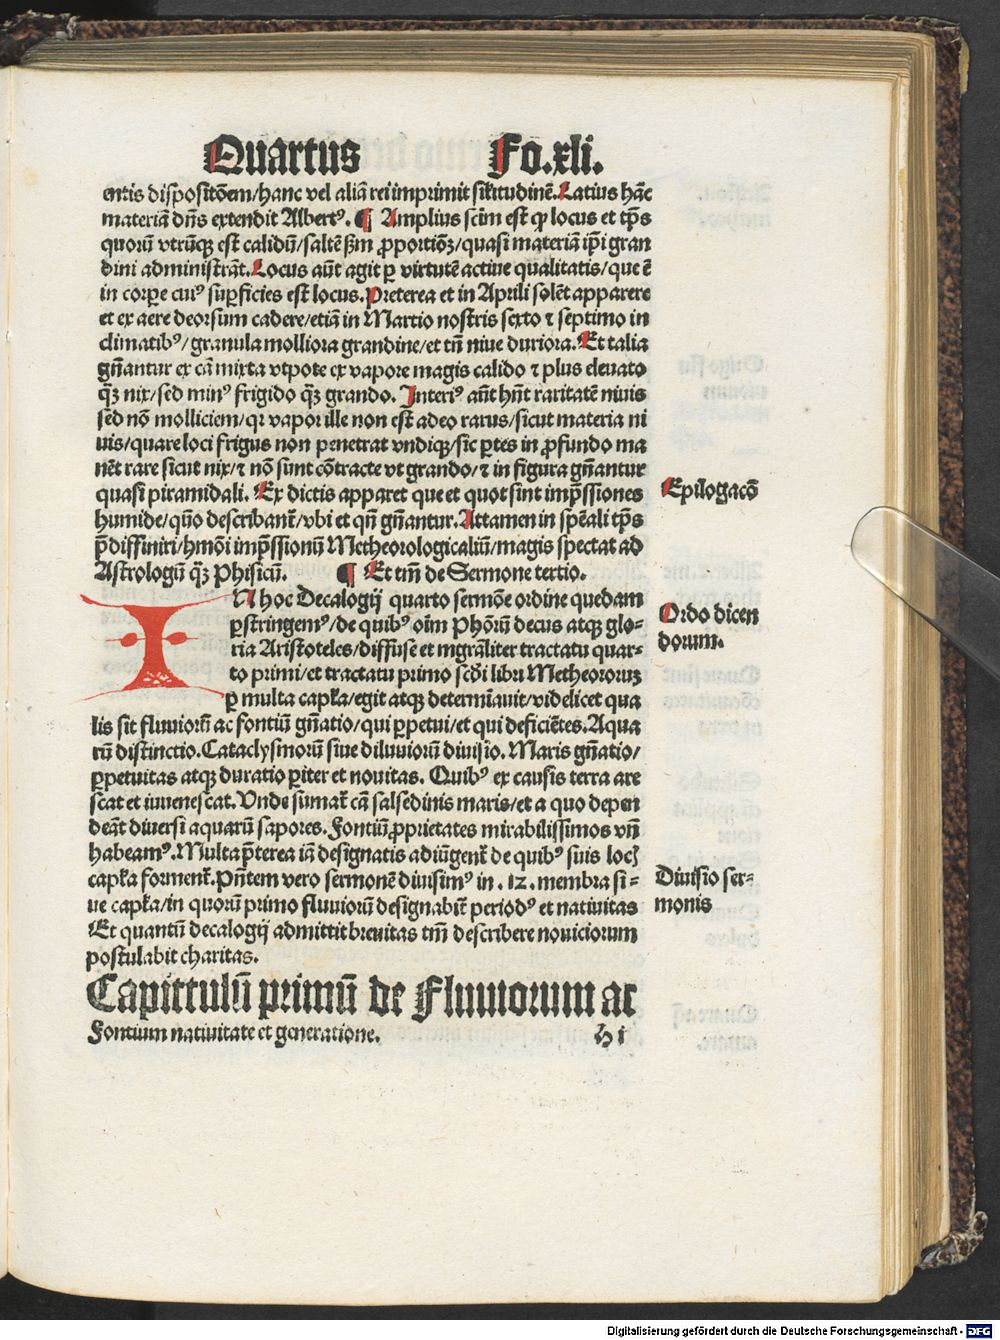 Quartus Fo.xli.
entis dispositōem/hanc vel aliā rei imprimit sil'itudinē. Latius hāc
materiā dn̄s extendit Albertꝰ. ¶ Amplius scīm est ꝙ locus et tp̄s
quorū vtrūqꝫ est calidū/saltē ẜm ꝓportiōꝫ/quasi materiā ip̄i gran
dini administrāt. Locus aūt agit ꝑ virtutē actiue qualitatis/que ē
in corpe cuiꝰ suꝑficies est locus. Preterea et in Aprili solēt apparere
et ex aere deorsum cadere/etiā in Martio nostris sexto ⁊ septimo in
climatibꝰ/granula molliora grandine/et tn̄ niue duriora. Et talia
gn̄antur ex cā mixta vtpote ex vapore magis calido ⁊ plus eleuato
qꝫ̄ nix/sed minꝰ frigido qꝫ̄ grando. Interiꝰ aūt hn̄t raritatē niuis
sed nō molliciem/qꝛ vapor ille non est adeo rarus/sicut materia ni
uis/quare loci frigus non penetrat vndiqꝫ/sic ꝑtes in ꝓfundo ma
nēt rare sicut nix/⁊ nō sunt cōtracte vt grando/⁊ in figura gn̄antur
quasi piramidali. Ex dictis apparet que et quot sint imp̄ssiones
humide/quō describant̄/vbi et qn̄ gn̄antur. Attamen in spēali tp̄s
p̄diffiniri/hmōi imp̄ssionū Metheorologicaliū/magis spectat ad
Astrologū qꝫ̄ Phisicū. ¶ Et tm̄ de Sermone tertio.
IN hoc Decalogij quarto sermōe ordine quedam
ꝑstringemꝰ/de quibꝰ oīm Phōrū decus atqꝫ glo-
ria Aristoteles/diffuse et mgrāliter tractatu quar-
to primi/et tractatu primo scd̄i libri Metheororuꝫ
ꝑ multa capl'a/egit atqꝫ determīauit/videlicet qua
lis sit fluuiorū ac fontiū gn̄atio/qui ꝑpetui/et qui deficiētes. Aqua
rū distinctio. Cataclysmorū siue diluuiorū diuisio. Maris gn̄atio/
ꝑpetuitas atqꝫ duratio ꝑiter et nouitas. Quibꝰ ex causis terra are
scat et iuuenescat. Vnde sumat̄ cā salsedinis maris/et a quo depen
deāt diuersi aquarū sapores. Fontiū ꝓprietates mirabilissimos vn̄
habeamꝰ. Multa p̄terea iā designatis adiūgent̄ de quibꝰ suis locꝭ
capl'a forment̄. Pn̄tem vero sermonē diuisimꝰ in .12. membra si-
ue capl'a/in quorū primo fluuiorū designabit̄ periodꝰ et natiuitas
Et quantū decalogij admittit breuitas tm̄ describere nouiciorum
postulabit charitas.
Capittulū primū de Fluuiorum ac
Fontium natiuitate et generatione. hi
Epilogacō
Ordo dicen
dorum.
Diuisio ser-
monis
Digitalisierung gefördert durch die Deutsche Forschungsgemeinschaft - DFG